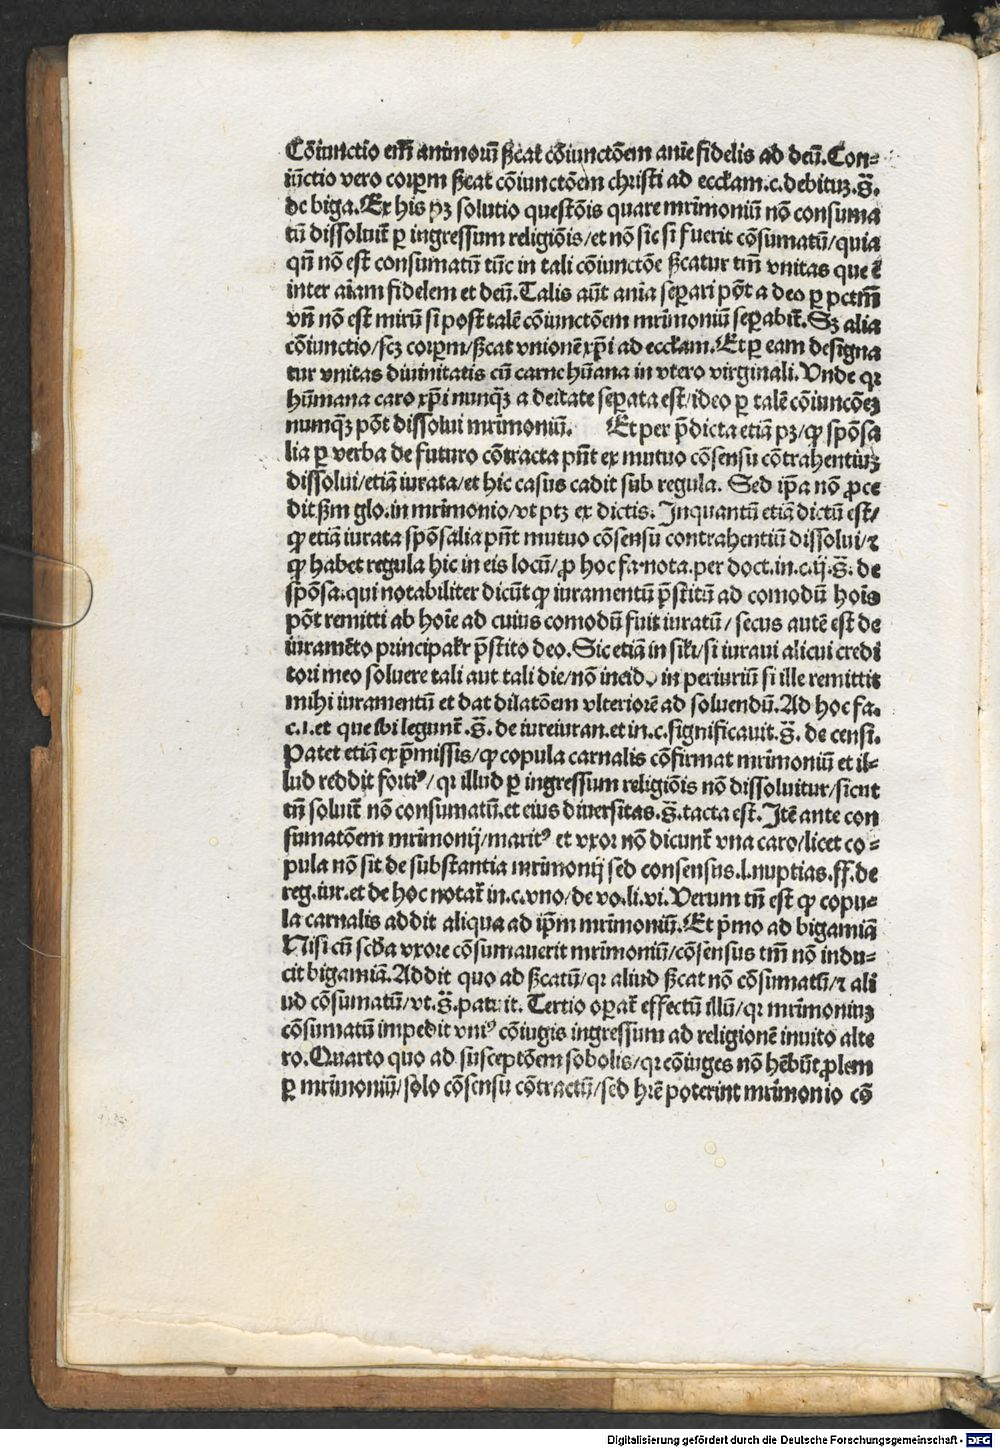 Cõiunctio em̄ animoruꝫ ſꝫcat̄ cõiunctõem anīe fidelis ad deū. Con⸗
iūctio vero corpꝝm ſꝫcat cõiunctõem chriſti ad eccl̄am.c.debituꝫ.s̄.
de biga. Ex his pꝫ solutio queſtõis quare mr̄imoniū nõ conſuma
tū diſſoluit̄ ꝑ ingreſſum religiõis/et nõ ſic ſi fuerit cõſumatū/quia
qn̄ nõ eſt conſumatū tūc in tali cõiunctõe ſꝫcatur tm̄ vnitas que ē
inter aīam fidelem et deū. Talis aūt anīa ſeꝑari põt a deo ꝑ pctm̄
vn̄ nõ eſt mirū ſi poſt talē cõiunctõem mr̄imoniū ſeꝑabit̄. Sꝫ alia
cõiunctio/ſcꝫ corpꝝm/ſꝫcat vnionē xp̄i ad eccl̄am. Et ꝑ eam deſigna
tur vnitas diuinitatis cū carne hūana in vtero virginali. Vnde qꝛ
hūmana caro xp̄i nunqꝫ a deitate ſeꝑata eſt/ideo ꝑ talē cõiuncõeꝫ
numqꝫ põt diſſolui mr̄imoniū. Et per p̄dicta etiā pꝫ/ꝙ ſpõſa
lia ꝑ verba de futuro cõtracta pn̄t ex mutuo cõſenſu cõtrahentiuꝫ
diſſolui/etiā iurata/et hic caſus cadit ſub regula. Sed ip̄a nõ ꝓce
dit ſꝫm glo.in mr̄imonio/vt ptꝫ ex dictis. Inquantū etiā dictū eſt/
ꝙ etiā iurata ſpõſalia pn̄t mutuo cõſenſu contrahentiū diſſolui/⁊
ꝙ habet regula hic in eis locū/ꝓ hoc fa.nota.per doct.in.c.ij.s̄. de
ſpõſa.qui notabiliter dicūt ꝙ iuramentū p̄ſtitū ad comodū hoīs
põt remitti ab hoīe ad cuius comodū fuit iuratū/ſecus autē eſt de
iuramēto principalr̄ p̄ſtito deo. Sic etiā in ſil̄i/ſi iuraui alicui credi
tori meo ſoluere tali aut tali die/nõ incido in periuriū ſi ille remittit
mihi iuramentū et dat dilatõem vlteriorē ad ſoluendū. Ad hoc fa.
c.1.et que ibi legunt̄.s̄. de iureiuran.et in.c.ſignificauit.s̄. de cenſi.
Patet etiā ex p̄miſſis/ꝙ copula carnalis cõfirmat mr̄imoniū et il⸗
lud reddit fortiꝰ/qꝛ illud ꝑ ingreſſum religiõis nõ diſſoluitur/ſicut
tn̄ ſoluit̄ nõ conſumatū.et eius diuerſitas.s̄.tacta eſt. Itē ante con
ſumatõem mr̄imonij/maritꝰ et vxor nõ dicunt̄ vna caro/licet co⸗
pula nõ ſit de ſubſtantia mr̄imonij ſed conſenſus.l.nuptias.ff.de
reg.iur.et de hoc notat̄ in.c.vno/de vo.li.vi. Verum tn̄ eſt ꝙ copu⸗
la carnalis addit aliqua ad ip̄m mr̄imoniū. Et p̄mo ad bigamiā
Niſi cū ſcd̄a vxore cõſumauerit mr̄imoniū/cõſenſus tm̄ nõ indu⸗
cit bigamiā. Addit quo ad ſꝫcatū/qꝛ aliud ſꝫcat nõ cõſumatū/⁊ ali
ud cõſumatū/vt.s̄.patuit. Tertio oꝑat̄ effectū illū/qꝛ mr̄imoniuꝫ
cõſumatū impedit vniꝰ cõiugis ingreſſum ad religionē inuito alte
ro. Quarto quo ad ſuſceptõem ſobolis/qꝛ cõiuges nõ hēbūt ꝓlem
ꝑ mr̄imoniū/ſolo cõſenſu cõtractū/ſed hr̄e poterint mr̄imonio cõ
Digitalisierung gefördert durch die Deutsche Forschungsgemeinschaft - DFG